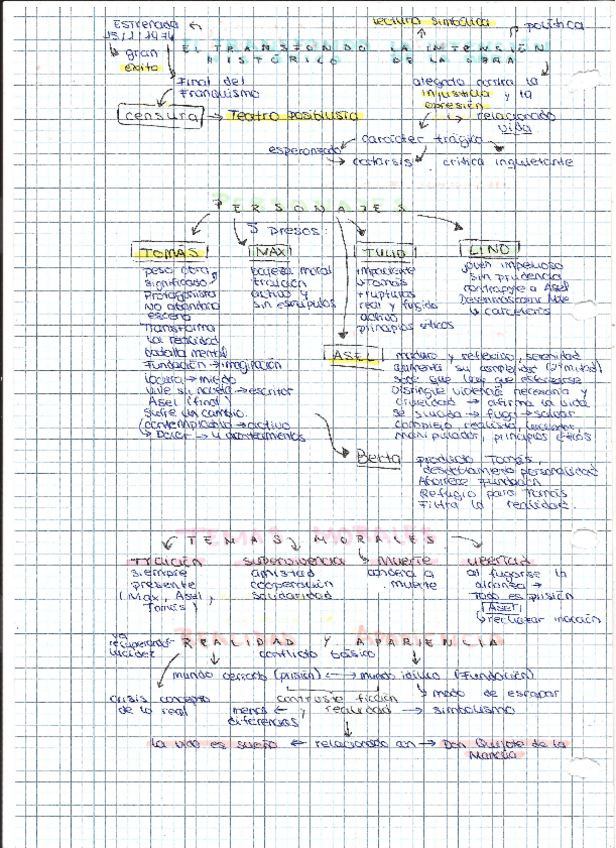 Estrenada
15/1/1974
gran
éxito
lectura simbólica
política
EL TRANSFONDO HISTÓRICO
LA INTENCIÓN DE LA OBRA
Final del
Franquismo
censura → Teatro posibilista
alegato contra la
injusticia y la
opresión
relacionado
vida
carácter trágico
esperanzado
catarsis
crítica inquietante
PERSONAJES
5 presos:
TOMÁS
peso obra,
significado,
Protagonista
No abandona
escena
Transforma
la realidad
batalla mental
Fundación → imaginación
locura → miedo
vive su novela → escritor
Asel (final)
sufre un cambio.
(contemplativo → activo
↳ Dolor → 4 acontecimientos
MAX
bajeza moral
traición
activo y
sin escrúpulos
TULIO
impaciente
↳ Tomás
+ rupturas
real y fingido
activo
principios éticos
LINO
joven impetuoso
sin prudencia
contrapuye a Asel
Desenmascarar Max
↳ carceleros
ASEL
maduro y reflexivo, serenidad
sabe que hay que
Distingue violencia necesaria y
crueldad → afirma la vida
se suicida → fuga → salvar
complejo, realista, luchador
manipulador, principios éticos
Berta
producto Tomás,
desdoblamiento personalidad
Aborrece Fundación
Refugio para Tomás
Filtra la realidad.
TEMAS MORALES
Traición
siempre
presente
(Max, Asel,
Tomás)
supervivencia
amistad
cooperación
solidaridad
Muerte
condena a
muerte
libertad
al fugarse la
alcanza →
Todo es prisión
ASEL
↳ rechazar inacción
va
recuperando
lucidez
REALIDAD Y APARIENCIA
conflicto básico
mundo cerrado (prisión) ↔ mundo idílico (Fundación)
crisis concepto
de lo real
contraste ficción
y realidad → simbolismo
menos
diferencias
modo de escapar
la vida es sueño ← relacionado con → Don Quijote de la
Mancha